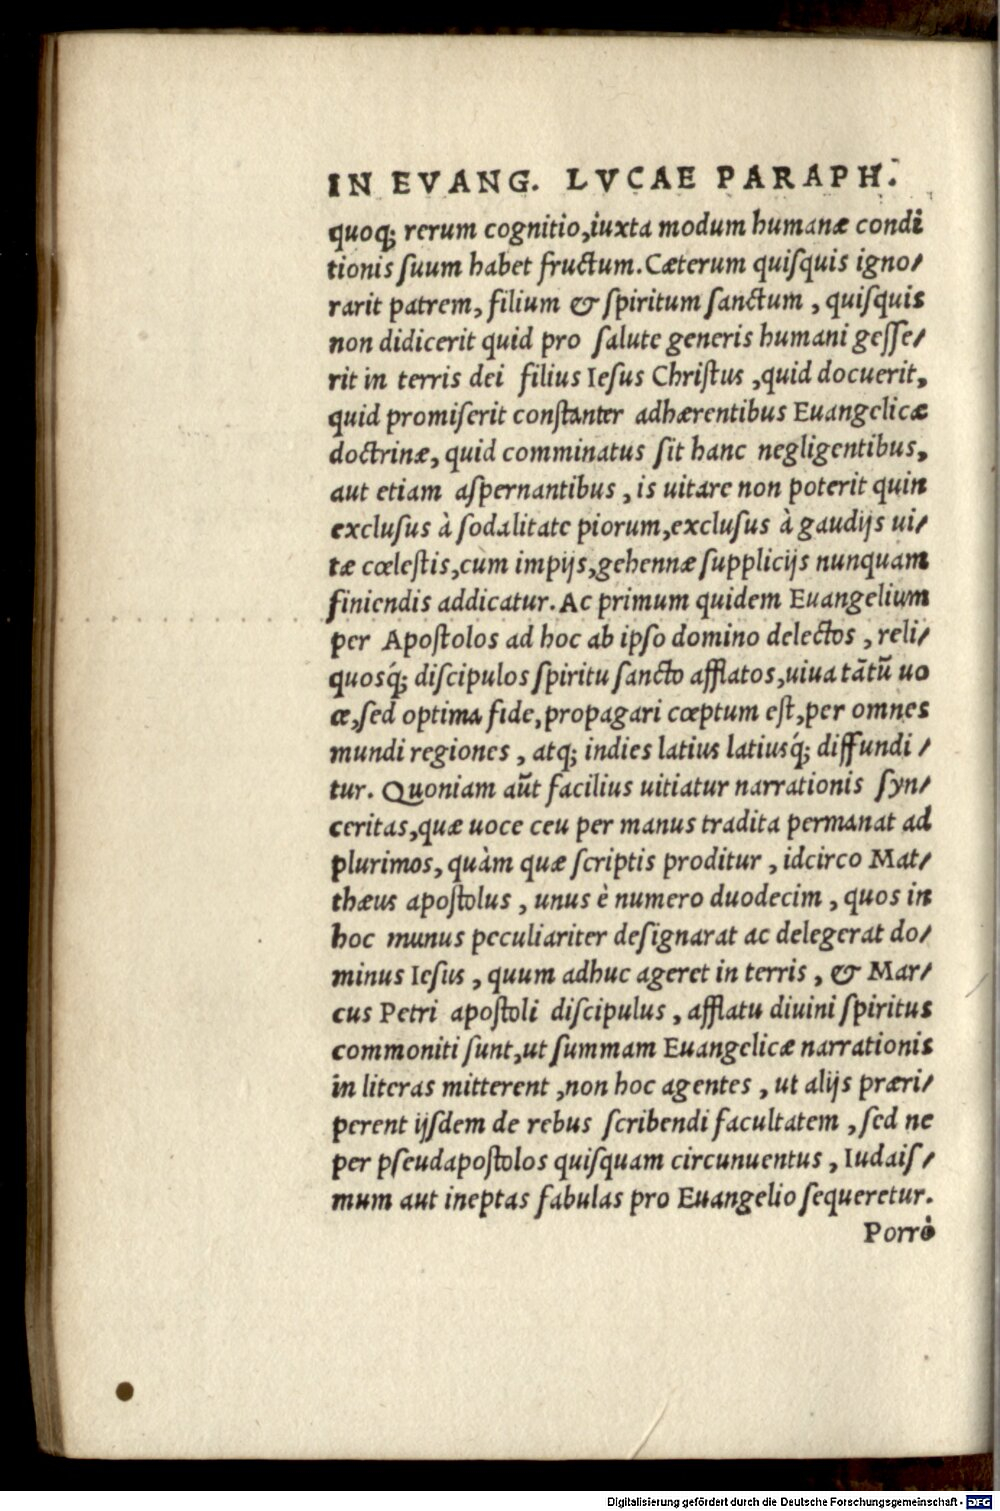 IN EVANG. LVCAE PARAPH.
quoq; rerum cognitio,iuxta modum humanæ condi
tionis ſuum habet fructum.Cæterum quiſquis igno/
rarit patrem, filium & ſpiritum ſanctum , quiſquis
non didicerit quid pro ſalute generis humani geſſe/
rit in terris dei filius Ieſus Chriſtus ,quid docuerit,
quid promiſerit conſtanter adhærentibus Euangelicæ
doctrinæ, quid comminatus ſit hanc negligentibus,
aut etiam aſpernantibus , is uitare non poterit quin
excluſus à ſodalitate piorum,excluſus à gaudijs ui/
tæ cœleſtis,cum impijs,gehennæ ſupplicijs nunquam
finiendis addicatur. Ac primum quidem Euangelium
per Apoſtolos ad hoc ab ipſo domino delectos , reli/
quosq́; diſcipulos ſpiritu ſancto afflatos,uiua tātũ uo
ce,ſed optima fide,propagari cœptum eſt,per omnes
mundi regiones , atq; indies latius latiusq́; diffundi /
tur. Quoniam aũt facilius uitiatur narrationis ſyn/
ceritas,quæ uoce ceu per manus tradita permanat ad
plurimos, quàm quæ ſcriptis proditur , idcirco Mat/
thæus apoſtolus , unus è numero duodecim , quos in
hoc munus peculiariter deſignarat ac delegerat do/
minus Ieſus , quum adhuc ageret in terris , & Mar/
cus Petri apoſtoli diſcipulus , afflatu diuini ſpiritus
commoniti ſunt,ut ſummam Euangelicæ narrationis
in literas mitterent ,non hoc agentes , ut alijs præri/
perent ijſdem de rebus ſcribendi facultatem , ſed ne
per pſeudapoſtolos quiſquam circunuentus , Iudaiſ/
mum aut ineptas fabulas pro Euangelio ſequeretur.
Porrò
Digitalisierung gefördert durch die Deutsche Forschungsgemeinschaft - DFG